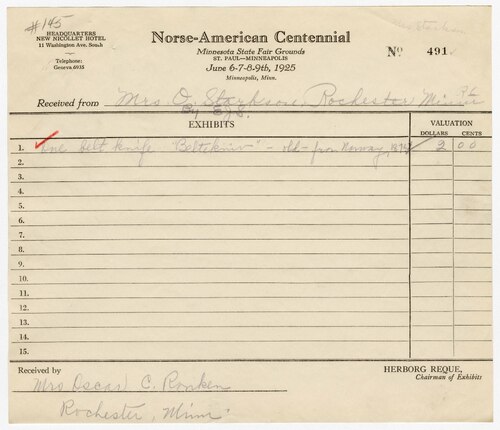 #145
HEADQUARTERS
NEW NICOLLET HOTEL
11 Washington Ave. South
Telephone:
Geneva 6935
Norse-American Centennial
Minnesota State Fair Grounds
ST. PAUL—MINNEAPOLIS
June 6-7-8-9th, 1925
Minneapolis, Minn.
No 491
Received from Mrs O. Starkson, Rochester Minn
By
EXHIBITS
VALUATION
DOLLARS CENTS
1. One belt knife "Beltekniv" - old - from Norway, 2 00
2.
3.
4.
5.
6.
7.
8.
9.
10.
11.
12.
13.
14.
15.
Received by
Mrs Oscar C. Ronken
Rochester, Minn
HERBORG REQUE,
Chairman of Exhibits